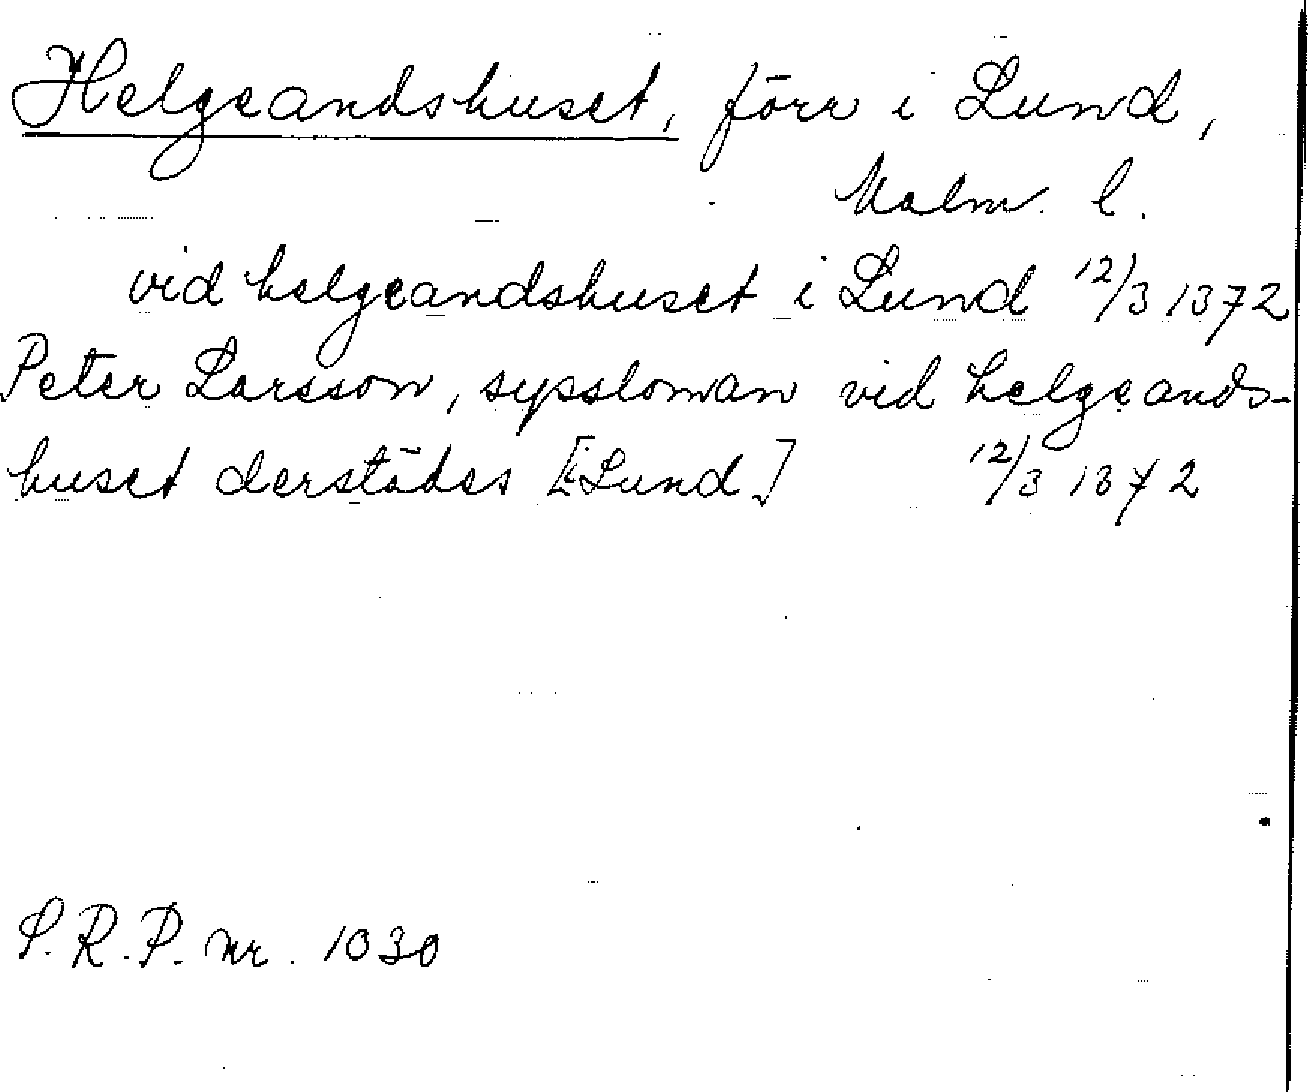 Helgeandshuset, förr i Lund,
Malm. l.
vid helgeandshuset i Lund 12/3 1372
Peter Larsson, syssloman vid helgeands-
huset derstädes [i Lund] 12/3 1372
S.R.P. nr. 1030